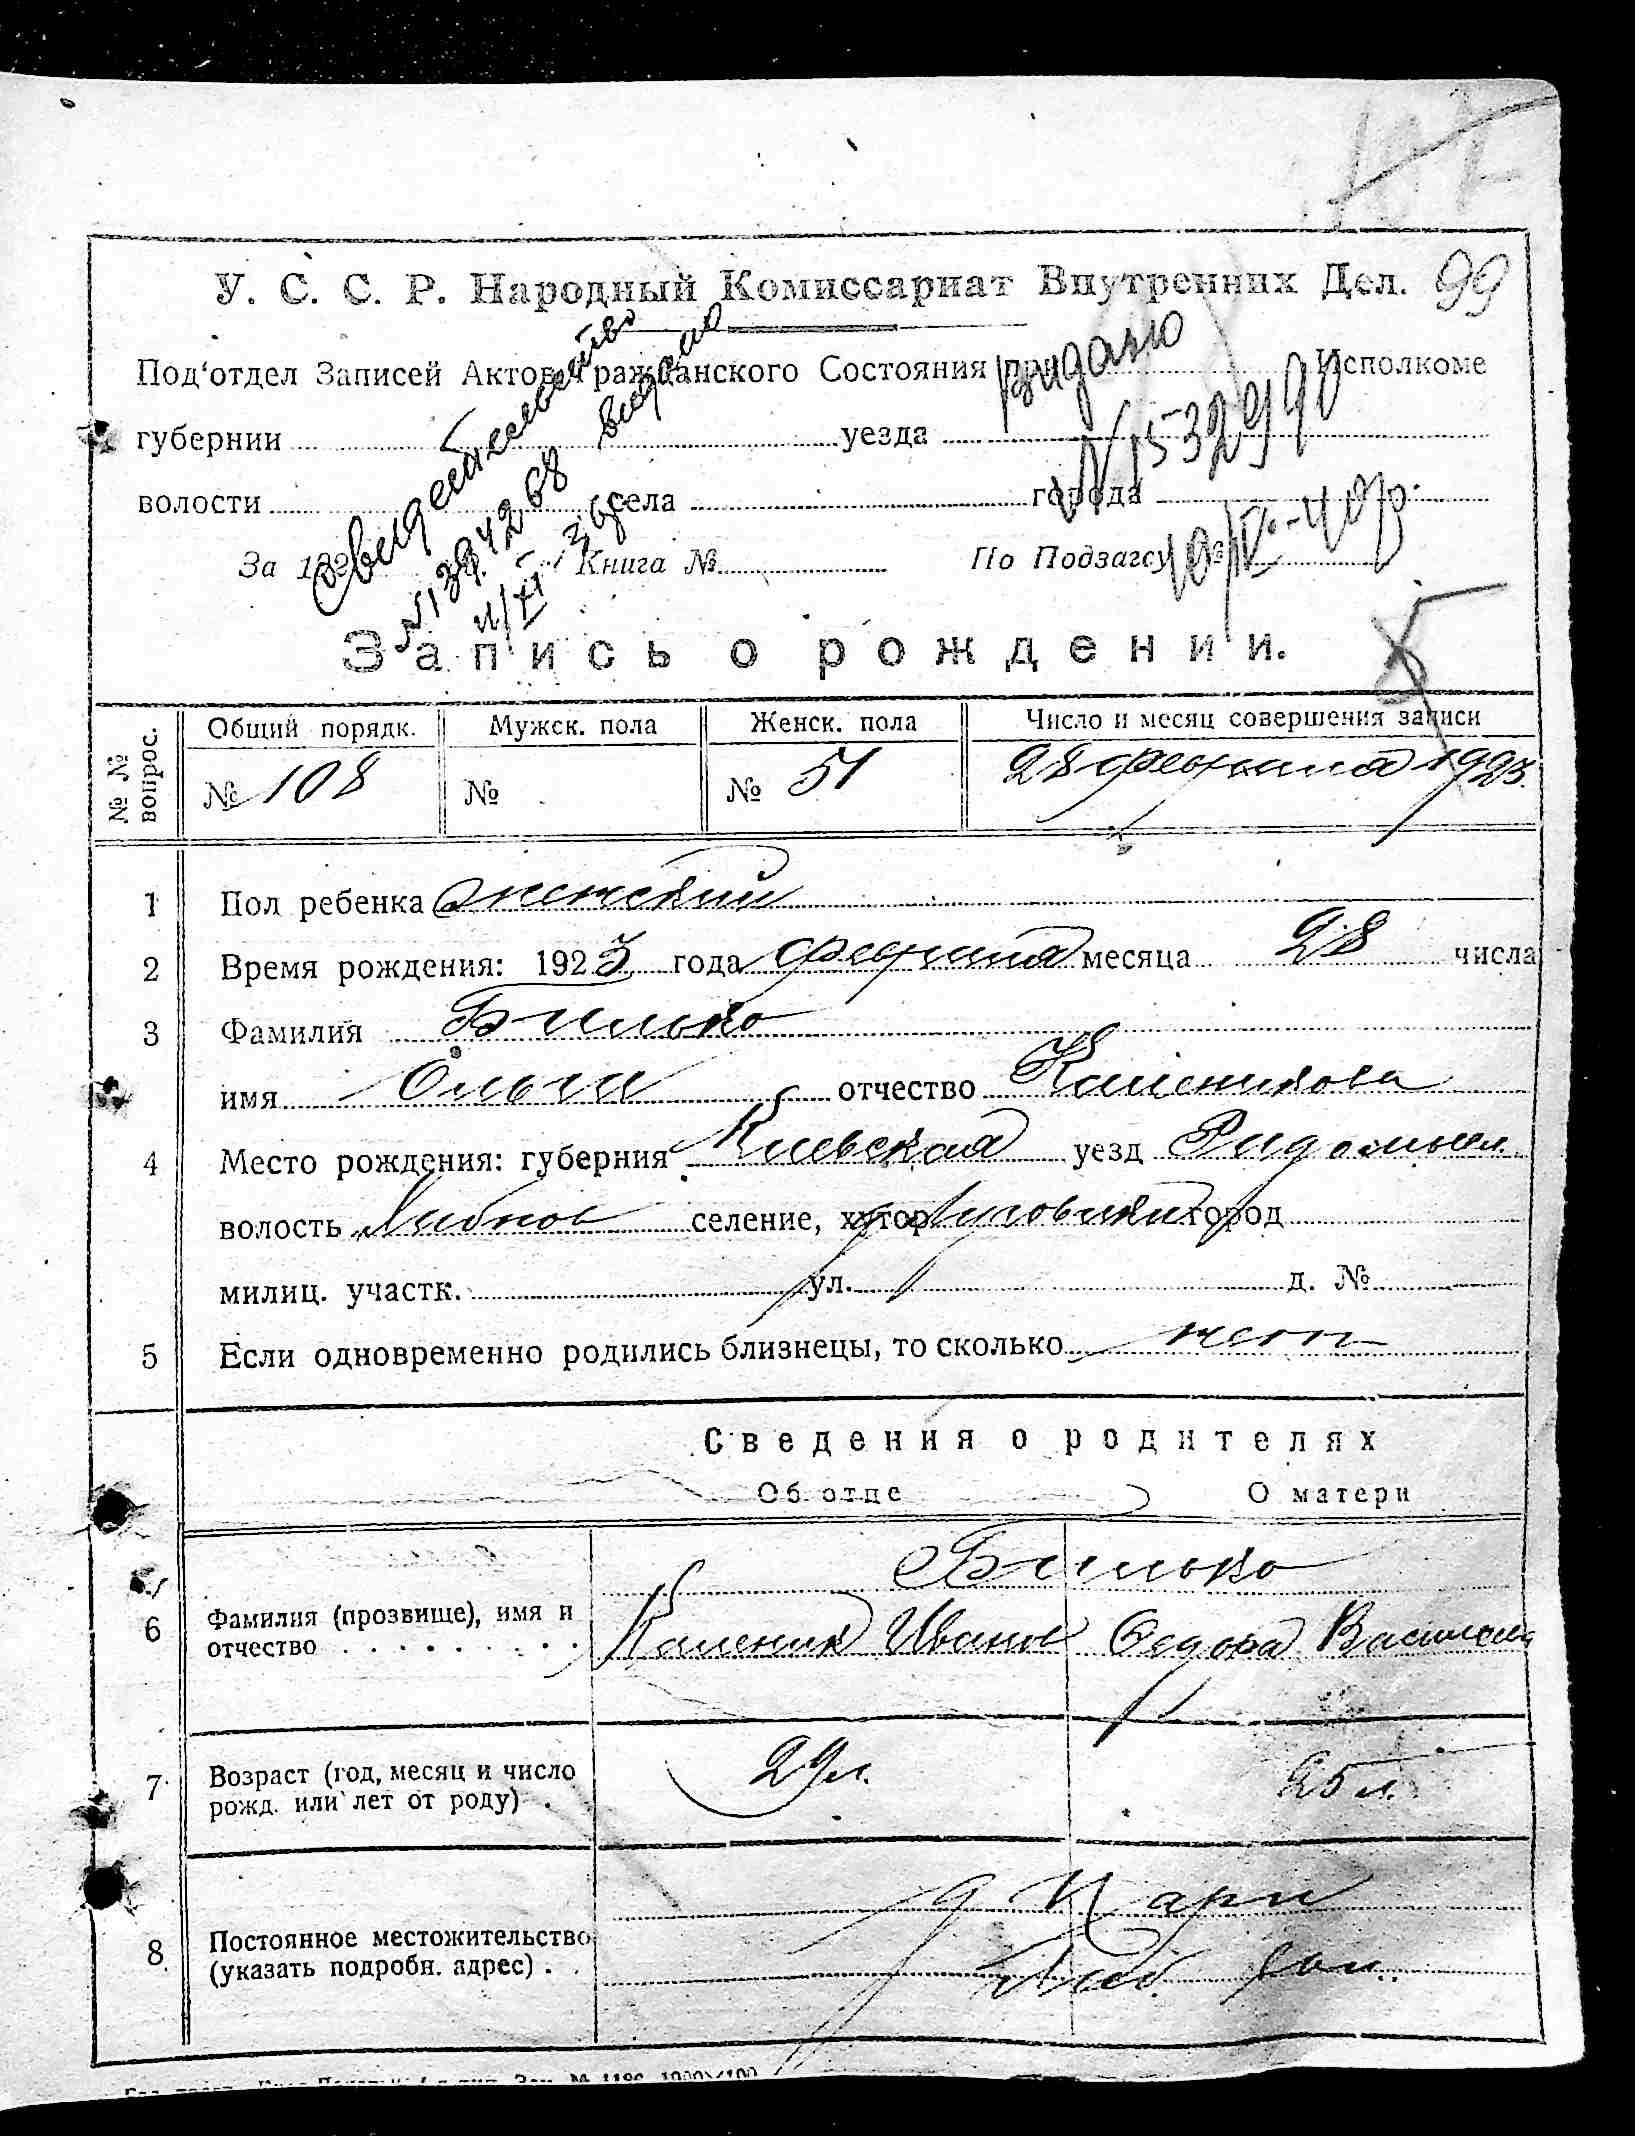 У. С. С. Р. Народный Комиссариат Внутренних Дел. 99
Под'отдел Записей Актов Гражданского Состояния при Исполкоме
губернии уезда
волости села города
За 192 Книга № По Подзагсу №
Свидетельство
№ 1394268 выдано
видано
№ 532990
10/IV-40р.
Запись о рождении.
№ № вопрос.
Общий порядк. Мужск. пола Женск. пола Число и месяц совершения записи
№ 108 № № 51 28 февраля 1923.
1 Пол ребенка женский
2 Время рождения: 1923 года февраля месяца 28 числа
3 Фамилия Билько
имя Ольга отчество Каленикова
4 Место рождения: губерния Киевская уезд Радомысл.
волость Хабнов селение, хутор город
милиц. участк. ул. д. №
5 Если одновременно родились близнецы, то сколько нет
Сведения о родителях
Об отце О матери
Билько
6 Фамилия (прозвище), имя и отчество Каленик Иванов Федора Василева
7 Возраст (год, месяц и число рожд. или лет от роду) 29 л. 25 л.
8 Постоянное местожительство (указать подробн. адрес)